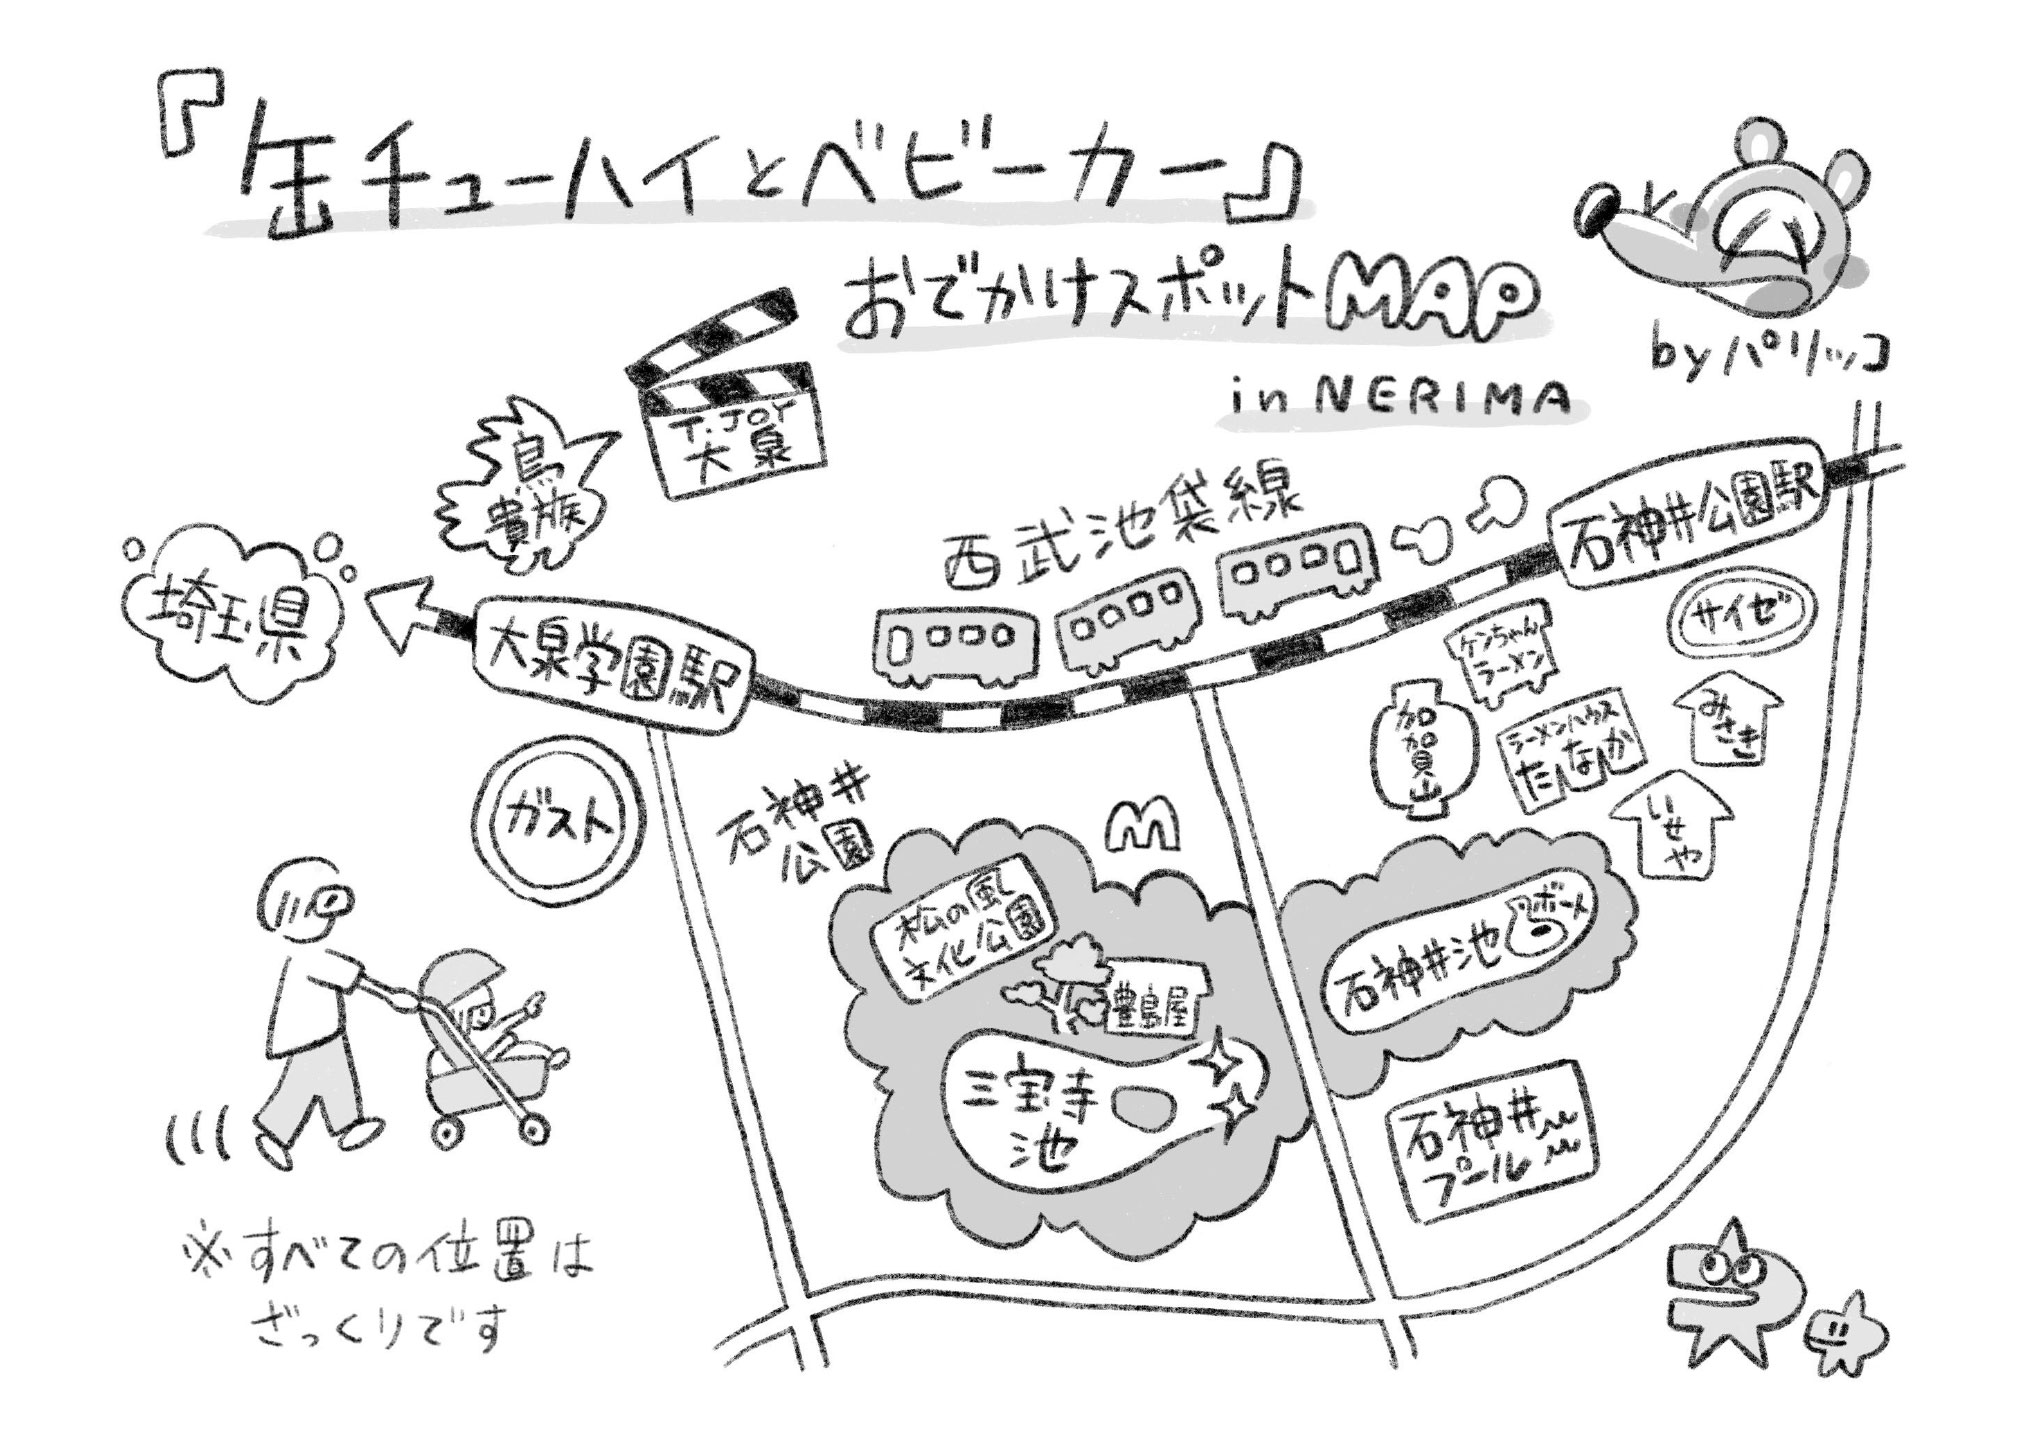 『缶チューハイとベビーカー』
おでかけスポットMAP
in NERIMA
byパリッコ
T・JOY
大泉
鳥
貴族
埼玉県
大泉学園駅
西武池袋線
石神井公園駅
サイゼ
ケンちゃん
ラーメン
加賀山
ラーメンハウス
たなか
みさき
いせや
ガスト
石神井
公園
M
松の風
文化公園
豊島屋
三宝寺
池
石神井池
ボート
石神井
プール
※すべての位置は
ざっくりです